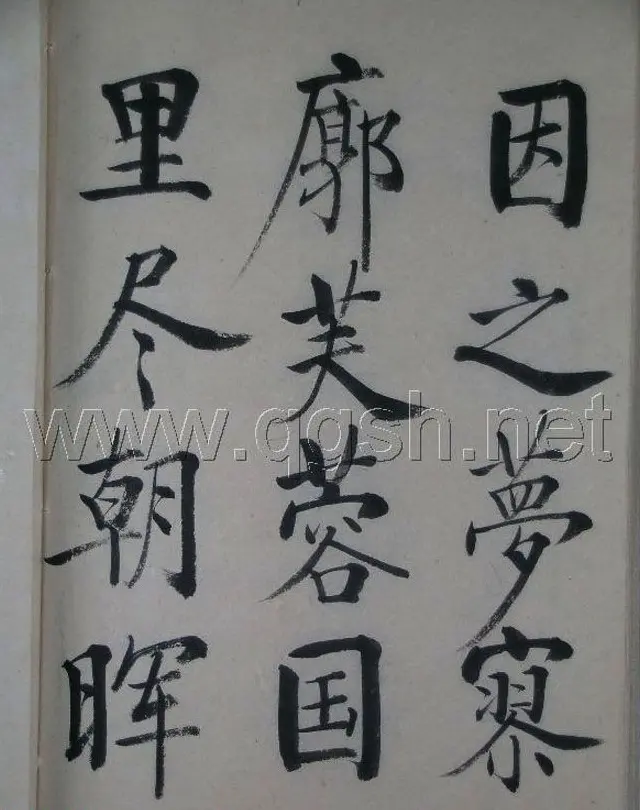 因之夢寥
廓芙蓉国
里尽朝晖
www.qgsh.net